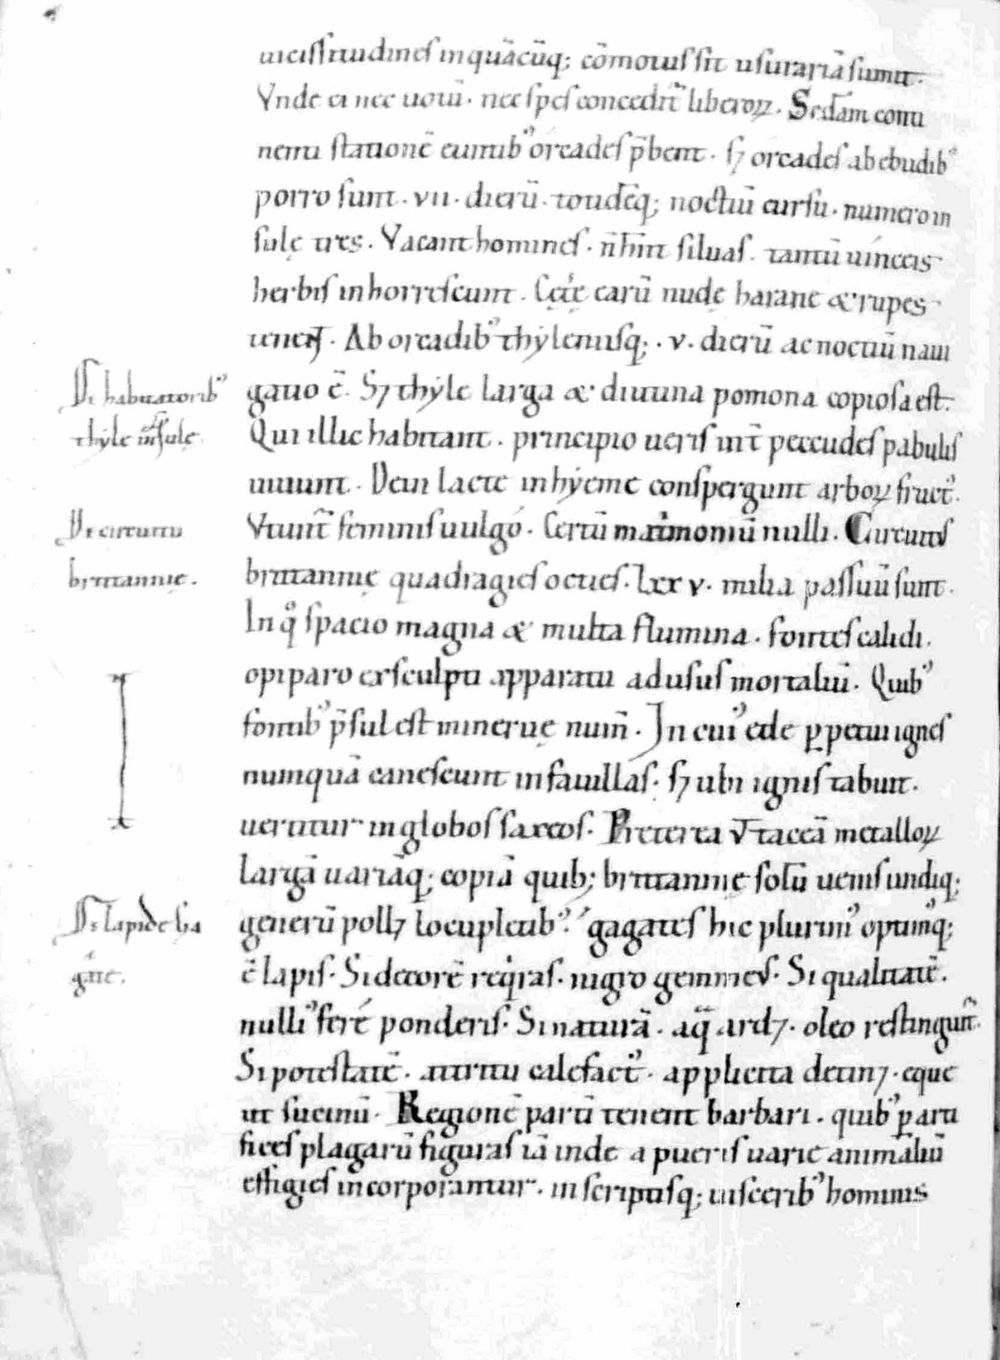 uicissitudines in quācūq; cōmotus sit usurariā sumit.
Vnde ei nec uotū. nec spes concedit̄ liberoꝝ. Secdam conti
nenti stationē euntib' orcades p̄bent. sꝫ orcades ab ebudib'
porro sunt. vii. dierū. totidēq; noctiū cursu. numero in
sulę tres. Vacant homines. n̄ hn̄t siluas. tantū iunceis
herbis inhorrescunt. Cętę earū nudę harane & rupes
tenenꝫ. Ab orcadib' thẏlen usq;. v. dierū ac noctiū naui
De habitatorib'
gatio ē. Sꝫ thẏle larga & diutina pomona copiosa est.
thẏle insule.
Qui illic habitant. principio ueris int̄ peccudes pabulis
uiuunt. Dein lacte in hẏeme conspergunt arboꝝ fruct'.
De circuitu
Vtunt̄ feminis uulgo. Certū matrimoniū nulli. Circuitus
brittannię.
brittannię quadragies octies. lxx v. milia passuū sunt.
In q̊ spacio magna & multa flumina. fontes calidi.
opiparo exsculpti apparatu ad usus mortaliū. Quib'
fontib' p̄sul est mineruę num̄. In cui' ede ꝑpetui ignes
numquā canescunt in fauillas. sꝫ ubi ignis tabuit.
uertitur in globos saxeos. Preterea v̄t taceā metalloꝝ
largā uariāq; copiā quib; brittannię solū uenis undiq;
De lapide ga
generū pollꝫ locupletib'. gagates hic plurim' optim'q;
gate.
ē lapis. Si decorē req̇ras. nigro gemmeus. Si qualitatē.
nulli' fere ponderis. Si naturā. aq̄ ardꝫ. oleo restingun̄t.
Si potestatē. attritu calefact'. applicita detinꝫ. eque
ut sucinū. Regionē partī tenent barbari. quib' ꝑ arti
fices plagarū figuras iā inde a pueris uarie animaliū
effigies incorporantur. inscriptisq; uiscerib' hominis